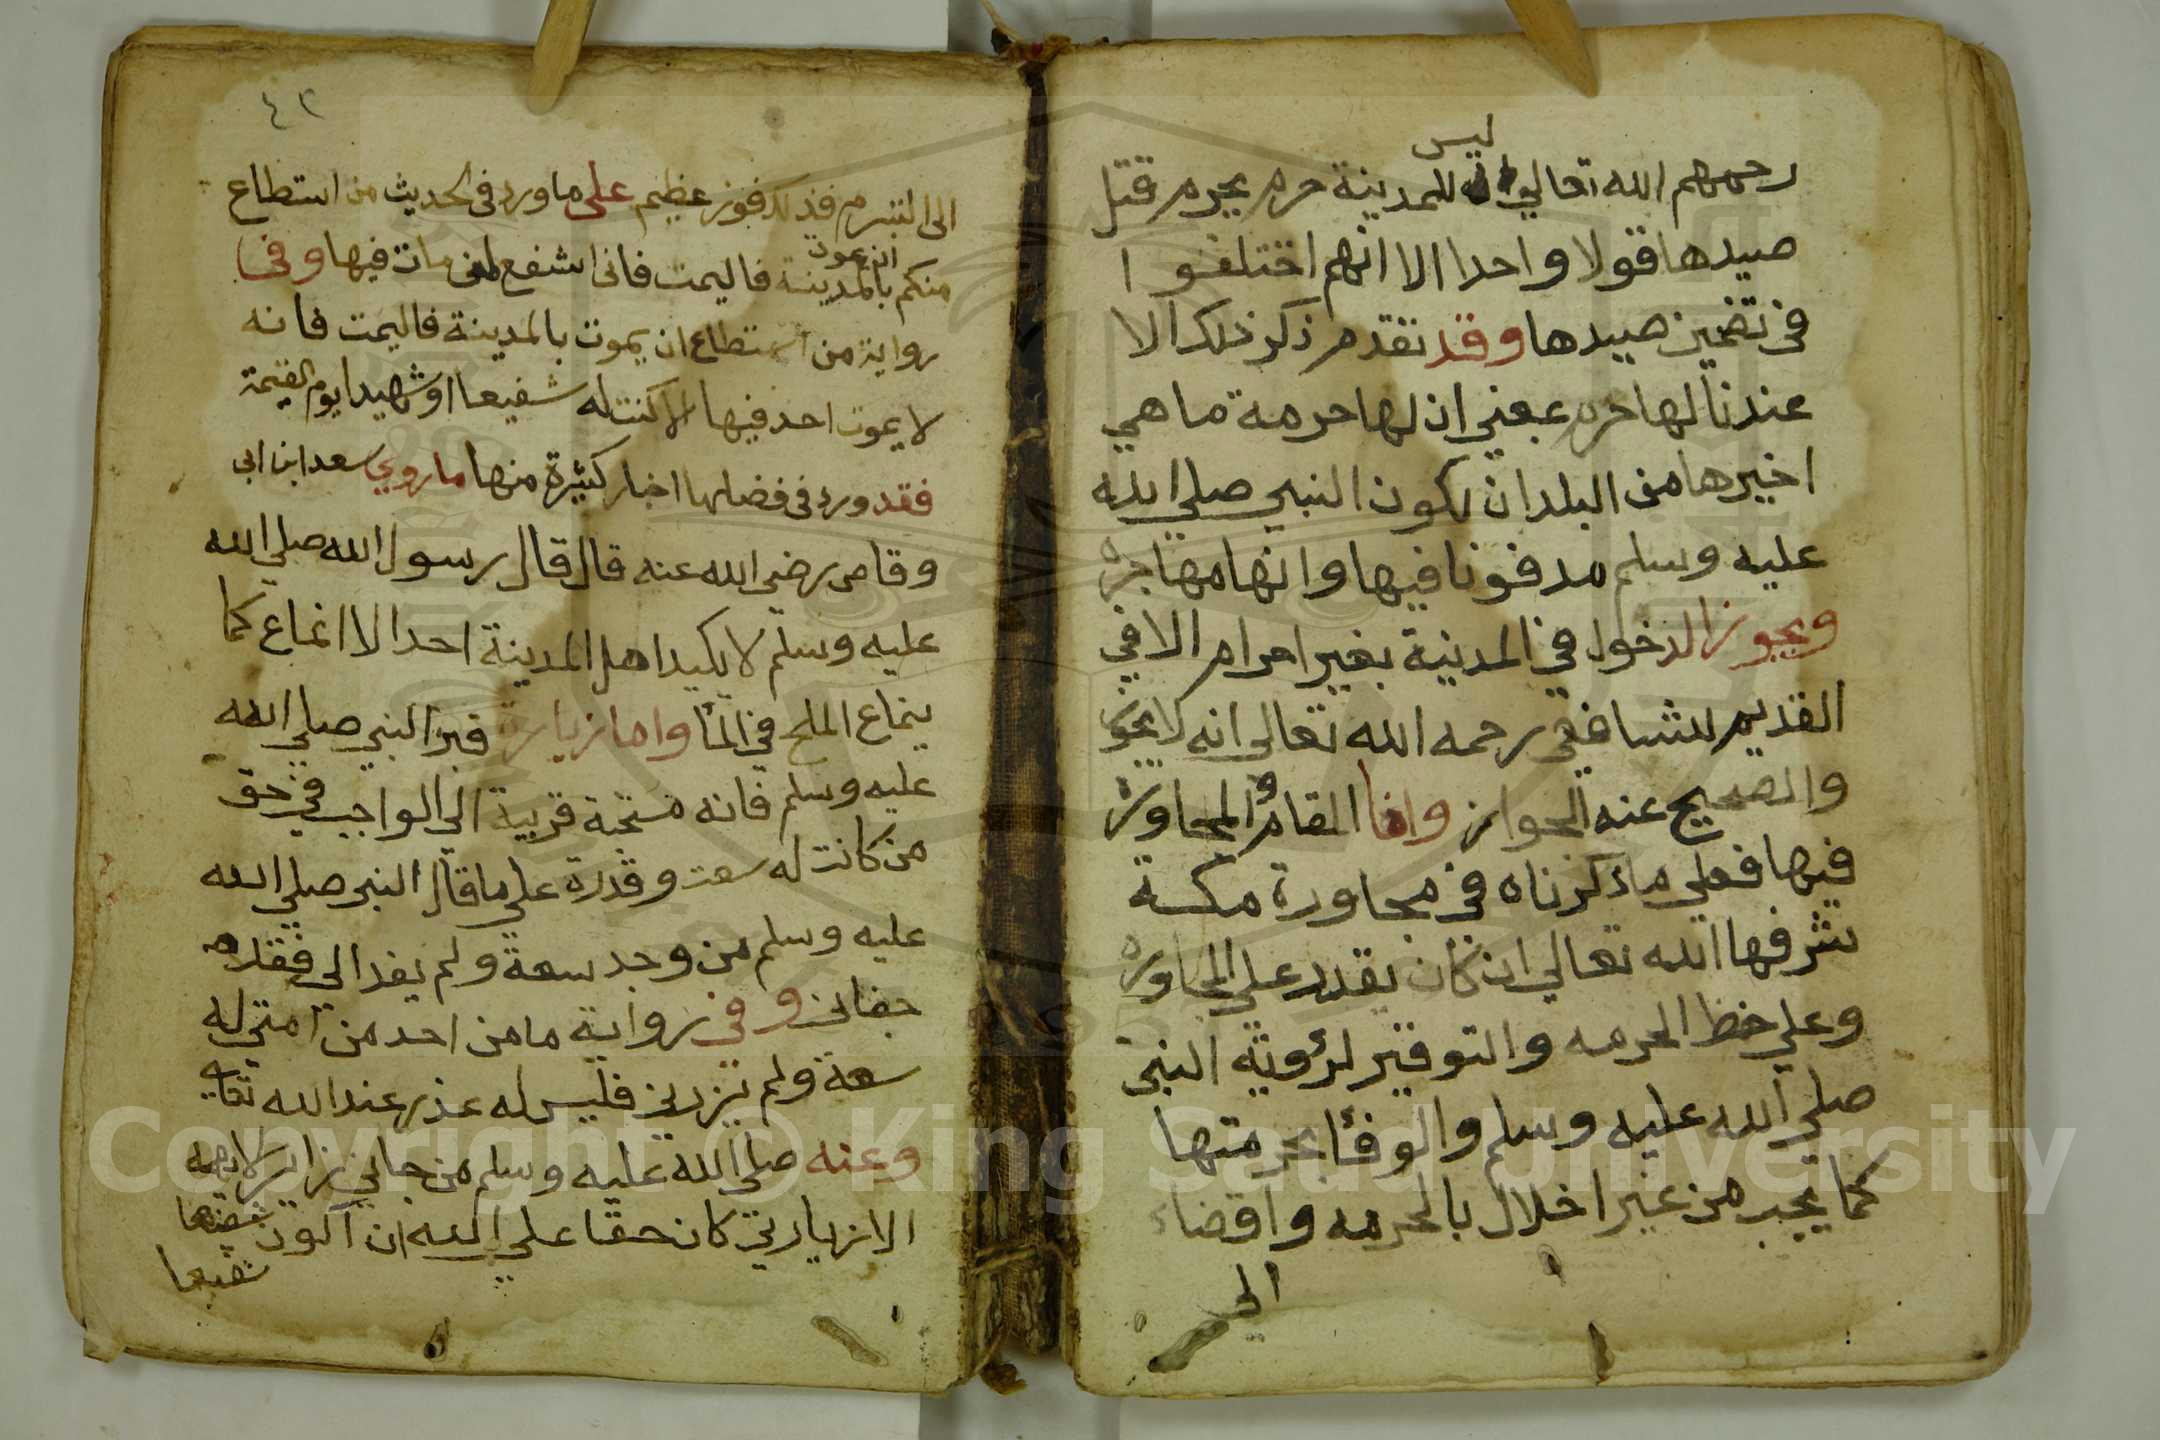 ليس
رحمهم الله تعالي للمدينة حرم يحرم قتل
صيدها قولا واحدا الا انهم اختلفوا
في تضمين صيدها وقد تقدم ذكر ذلك الا
عندنا لها حرم بمعني ان لها حرمة ما هي
اخيرها من البلدان لكون النبي صلي الله
عليه وسلم مدفونا فيها وانها مهاجره
ويجوز الدخول في المدينة بغير احرام الا في
القديم للشافعي رحمه الله تعالي انه لا يجوز
والصحيح عنه الجواز واما المقام والمجاورة
فيها فعلي ما ذكرناه في مجاورة مكة
شرفها الله تعالي ان كان يقدر علي المجاوره
وعلي حفظ الحرمه والتوقير لرؤية النبي
صلي الله عليه وسلم والوفا بحرمتها
كما يجب من غير اخلال بالحرمه وافضاء
الي
٤٢
الى التبرم فذلك فوز عظيم على ما ورد في الحديث من استطاع
ان يموت
منكم بالمدينة فاليمت فاني اشفع لمن مات فيها وفي
رواية من استطاع ان يموت بالمدينة فاليمت فانه
لا يموت احد فيها الا كنت له شفيعا او شهيدا يوم القيمة
فقد ورد في فضلها اخبار كثيرة منها ما روي سعد ابن ابي
وقاص رضي الله عنه قال قال رسول الله صلي الله
عليه وسلم لا يكيد اهل المدينة احدا الا انماع كما
ينماع الملح في الما واما زيارة قبر النبي صلي الله
عليه وسلم فانه مستحبة قريبة الي الواجب في حق
من كانت له سعت وقدرة علي ما قال النبي صلي الله
عليه وسلم من وجد سعة ولم يفد الي فقد
جفاني وفي رواية ما من احد من امتي له
سعة ولم يزرني فليس له عذر عند الله تعالي
وعنه صلي الله عليه وسلم من جاني زاير لا يهمه
الا زيارتي كان حقا علي الله ان اكون
شفيعا
Copyright © King Saud University